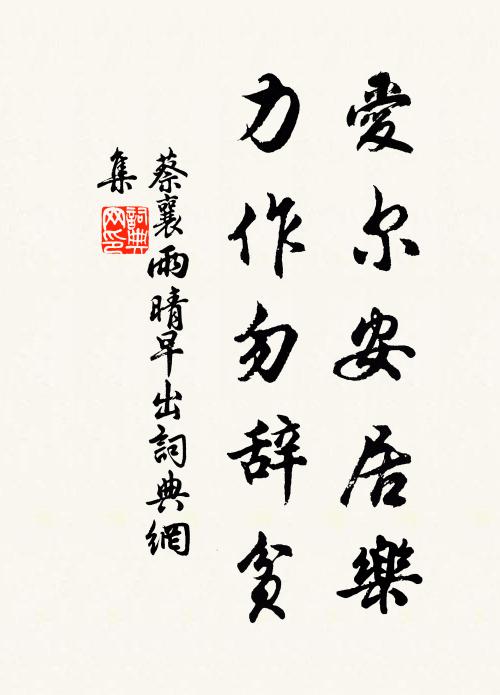 愛尔安居樂
力作勿辞貧
蔡襄雨晴早出詞典網
集
詞典
网印